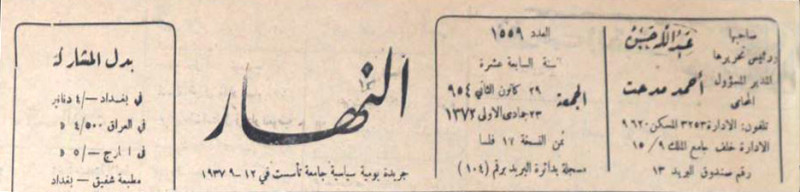 صاحبها
ورئيس تحريرها
عبد الله حسن
المدير المسؤول
المحامي
أحمد مدحت
تلفون: الادارة ٣٢٥٣ المسكن ٩٦٢٠
الادارة خلف جامع الملك ٩ / ١٥
رقم صندوق البريد ١٣
العدد ١٥٥٩
سنة السابعة عشرة
الجمعة
٢٩ كانون الثاني ٩٥٤
٢٣ جمادى الاولى ١٣٧٢
ثمن النسخة ١٧ فلسا
مسجلة بدائرة البريد برقم (١٠٤)
النهار
جريدة يومية سياسية جامعة تأسست في ١٢ - ٩ - ١٩٣٧
بدل المشاركة
في بغداد -/٤ دنانير
في العراق ٤/٥٠٠ د
في الخارج -/٥ د
مطبعة شفيق - بغداد